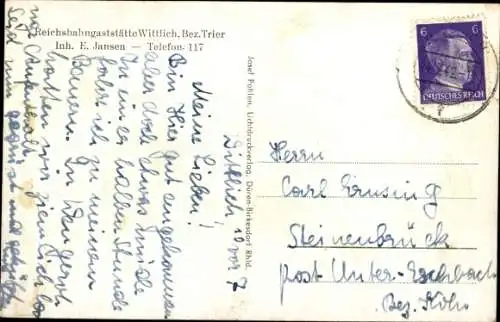 Reichsbahngaststätte Wittlich, Bez. Trier
Inh. E. Jansen — Telefon 117
Wittlich 10 vor 7
Meine Lieben!
Bin Hier gut angekommen
aber doch etwas müde
In einer halben Stunde
fahre ich zu meinen
Bauern. In
hatten wir ziemlich
Aufenthalt
Seid nun gegrüßt und
Josef Pohlen, Lichtdruckverlag, Düren-Birkesdorf Rhld.
6 6
DEUTSCHES REICH
Herrn
Carl
Steinenbrück
post Unter-Eschbach
Bez. Köln